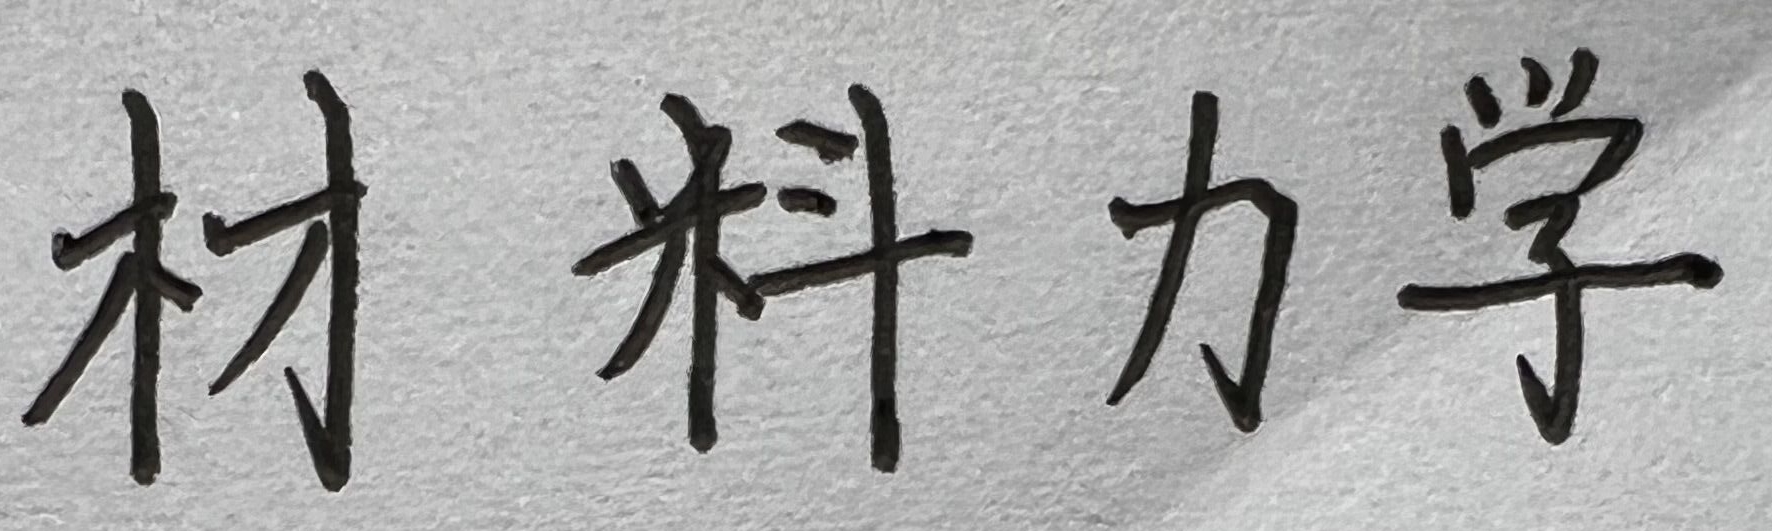 材料力学